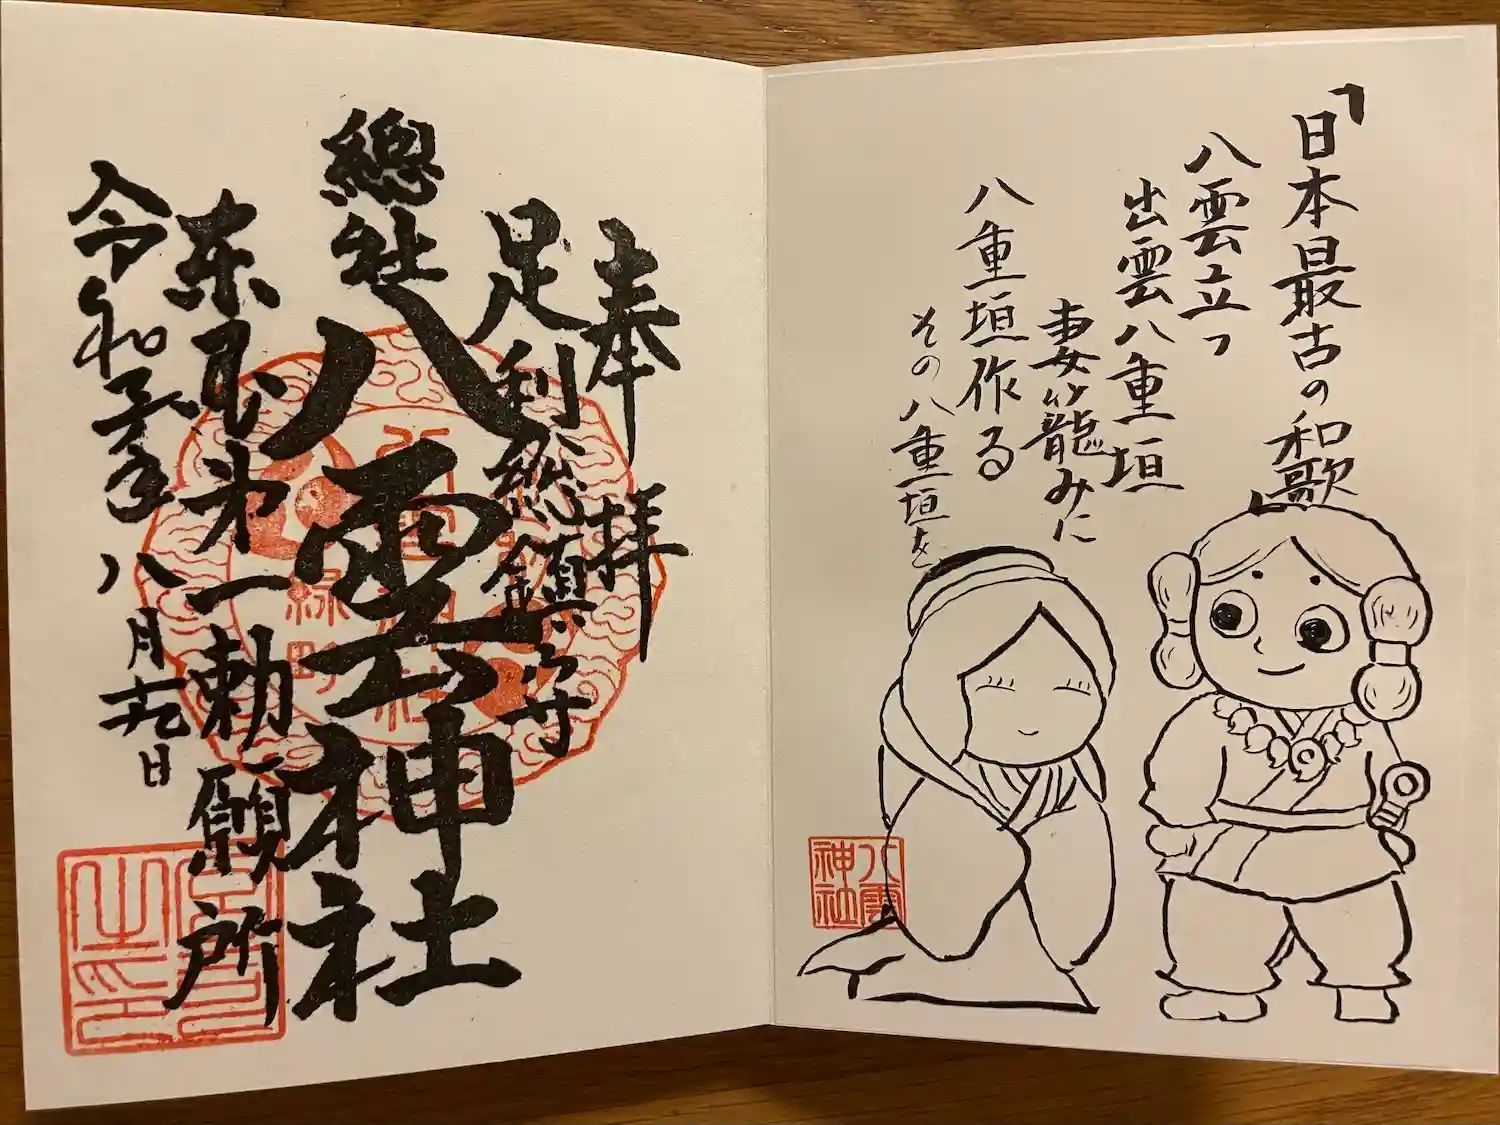 「日本最古の和歌」
八雲立つ
出雲八重垣
妻籠みに
八重垣作る
その八重垣を
八雲
神社
奉拝
足利総鎮守
總社八雲神社
東国第一勅願所
令和 年八月 日
八雲神社
緑町